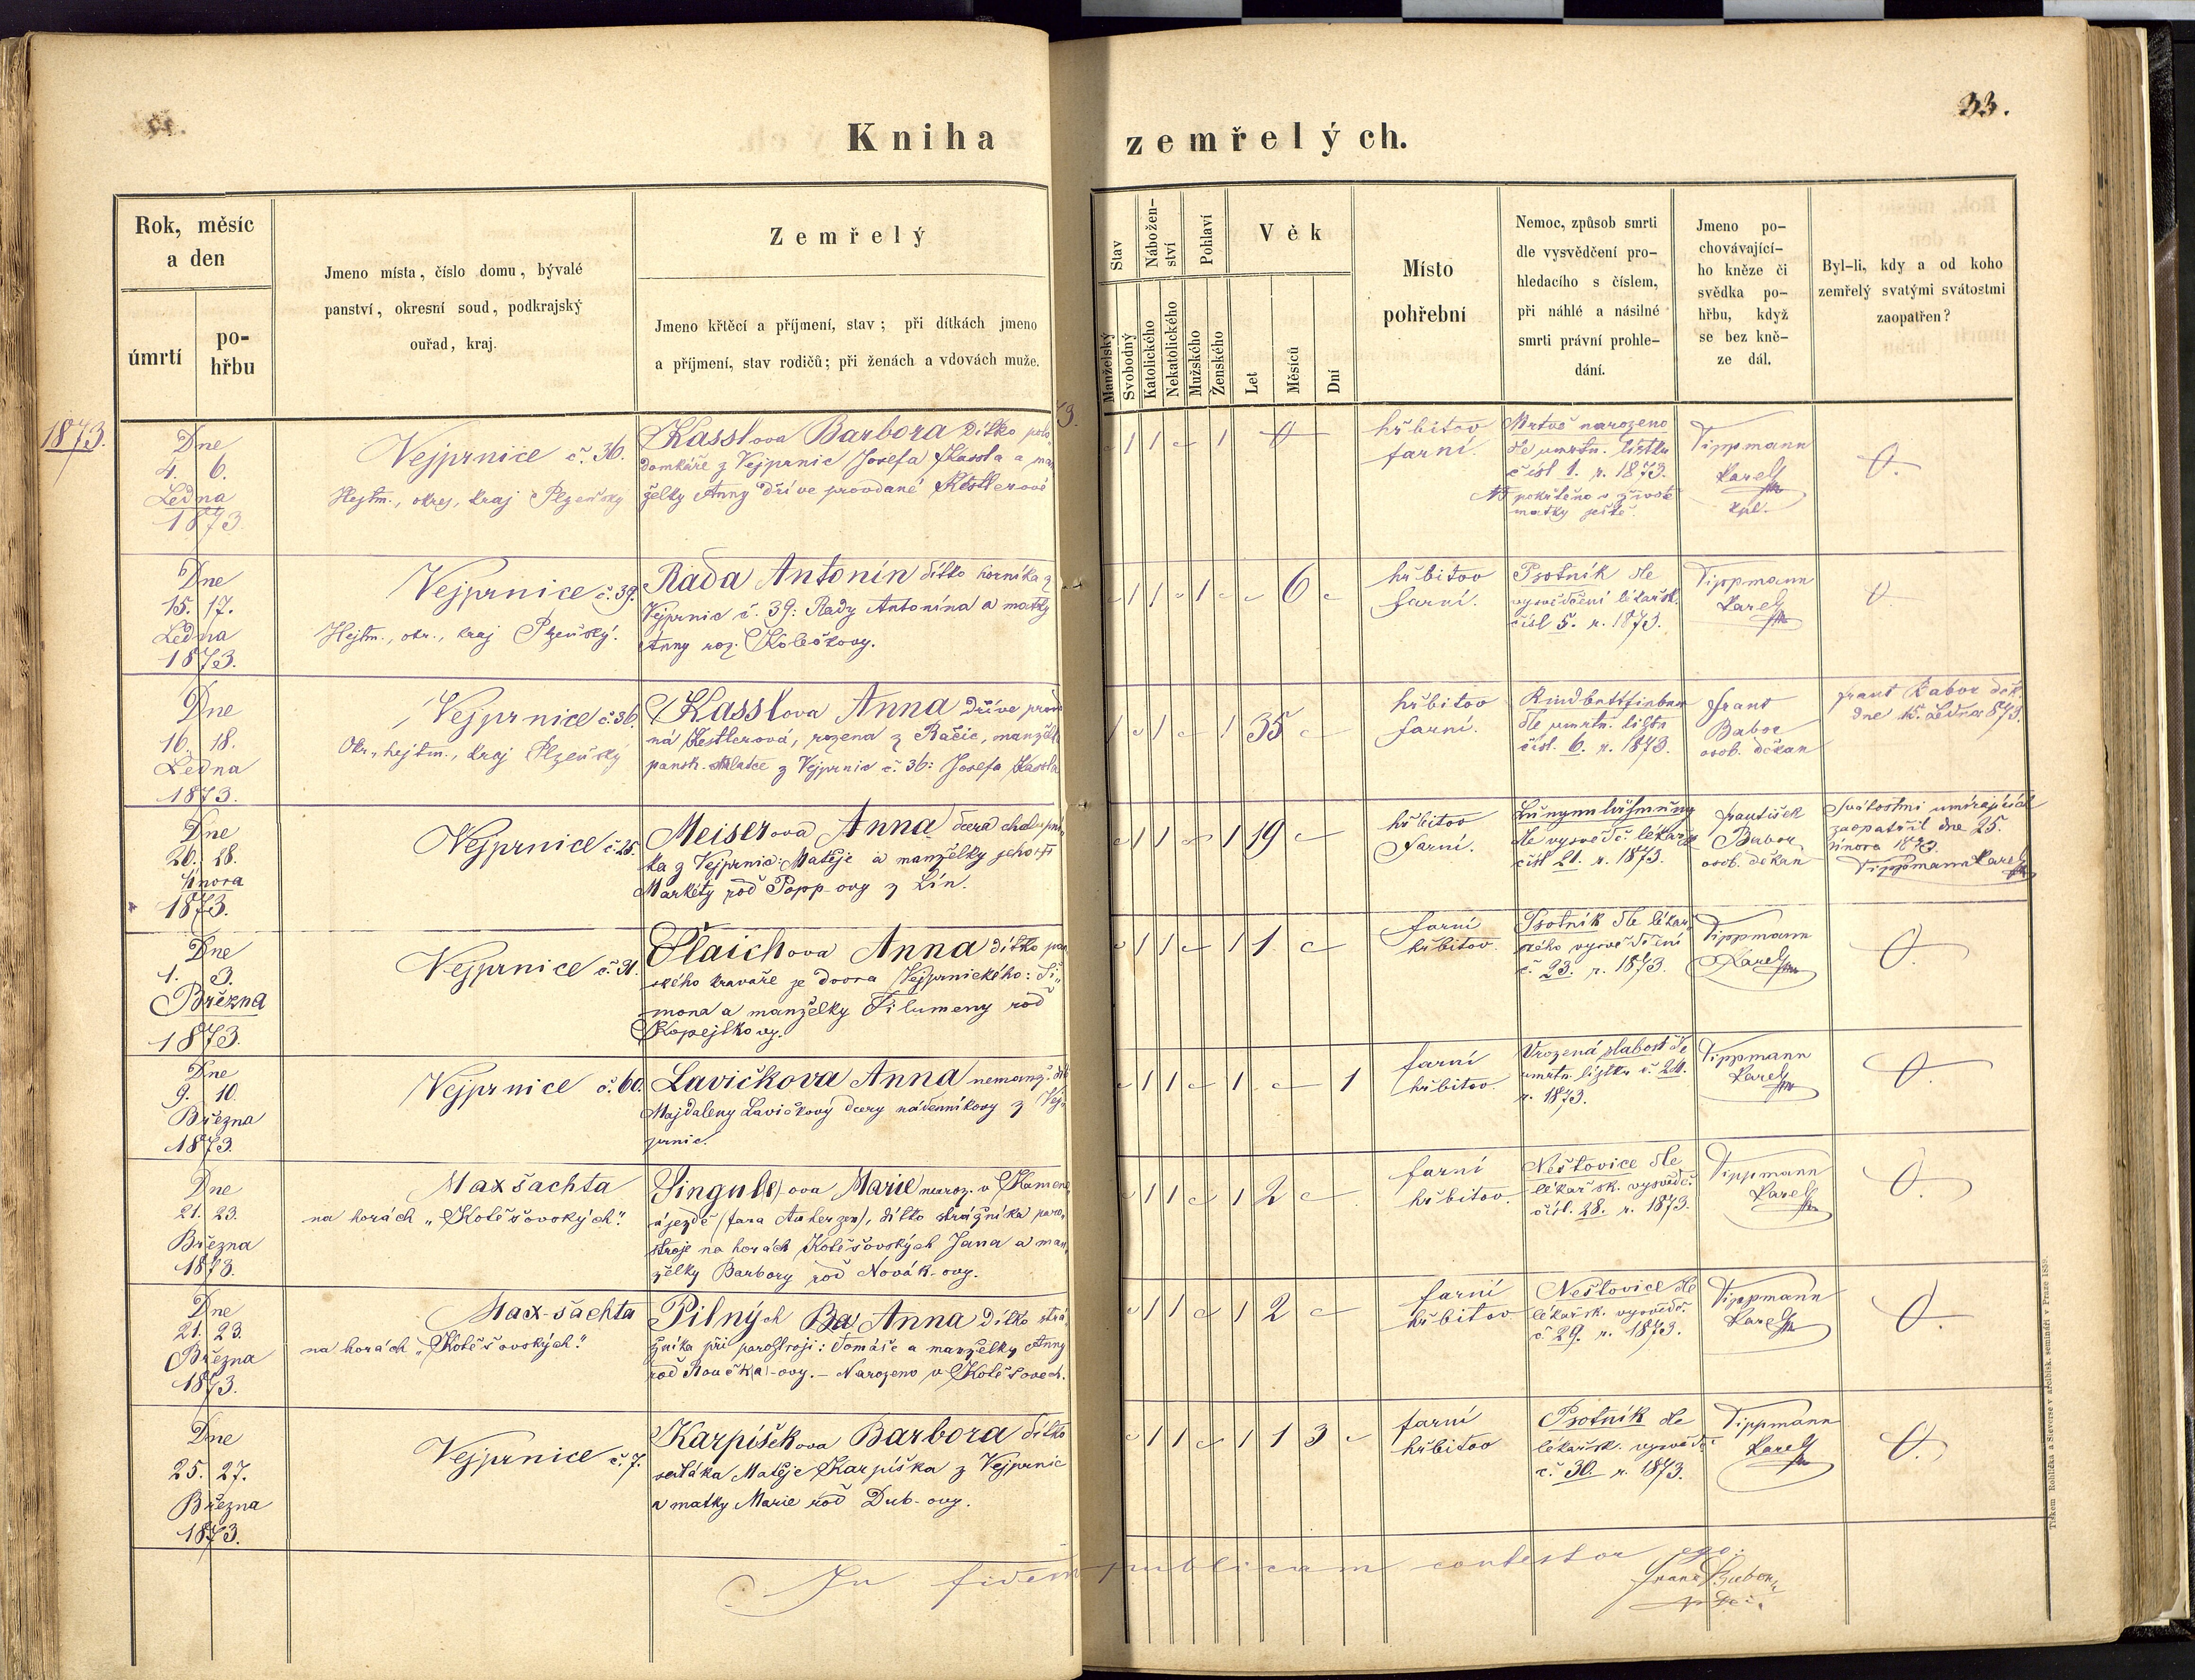 33.
Kniha zemřelých.
Rok, měsíc
a den
úmrtí
po-
hřbu
Jmeno místa, číslo domu, bývalé
panství, okresní soud, podkrajský
ouřad, kraj.
Zemřelý
Jmeno křtěcí a příjmení, stav; při dítkách jmeno
a příjmení, stav rodičů; při ženách a vdovách muže.
Stav
Manželský
Svobodný
Nábožen-
ství
Katolického
Nekatolického
Pohlaví
Mužského
Ženského
Věk
Let
Měsíců
Dní
Místo
pohřební
Nemoc, způsob smrti
dle vysvědčení pro-
hledacího s číslem,
při náhlé a násilné
smrti právní prohle-
dání.
Jmeno po-
chovávající-
ho kněze či
svědka po-
hřbu, když
se bez kně-
ze dál.
Byl-li, kdy a od koho
zemřelý svatými svátostmi
zaopatřen?
1873.
Dne
4. 6.
Ledna
1873.
Vejprnice č. 36.
Hejtm., okres, kraj Plzeňský
Kasslova Barbora dítko polo
domkáře z Vejprnic Josefa Kassla a man
želky Anny dříve provdané Kestlerové
1 1 1
hřbitov
farní.
Mrtvě narozeno
dle umrtn. lístku
čísl 1. r. 1873.
NB pokřtěno v životě
matky ještě.
Tippmann
Karel
kpl.
Dne
15. 17.
Ledna
1873.
Vejprnice č. 39.
Hejtm., okr., kraj Plzeňský.
Rada Antonín dítko horníka z
Vejprnic č. 39: Rady Antonína a matky
Anny roz. Kolečkovy.
1 1 1 6
hřbitov
farní.
Psotník dle
vysvědčení lékařsk.
čísl 5. r. 1873.
Tippmann
Karel
Dne
16. 18.
Ledna
1873.
Vejprnice č. 36.
Okr., hejtm., kraj Plzeňský
Kasslova Anna dříve prov
ná Kestlerová, rozena z Račic, manžel
pansk. z Vejprnic č. 36: Josefa Kassla
1 1 1 35
hřbitov
farní.
dle umrtn. listu
čísl. 6. r. 1873.
Frant
Babor
osob. děkan
Frant Babor děk.
dne 15. Ledna 873.
Dne
26. 28.
Února
1873.
Vejprnice č. 25.
Meiserova Anna dcera chalupní
ka z Vejprnic: Matěje a manželky jeho
Markéty rod Popp-ovy z Lín.
1 1 1 19
hřbitov
Farní.
dle vysvědč. lékařsk
čísl 21. r. 1873.
František
Babor
osob. děkan
Svátostmi umírajících
zaopatřil dne 25.
února 1873.
Tippmann Karel
Dne
1. 3.
Března
1873.
Vejprnice č. 31.
Plaichova Anna dítko pan
ského kravaře ze dvora Vejprnického: Ši-
mona a manželky Filumeny rod
Kopejtkovy.
1 1 1 1
farní
hřbitov.
Psotník dle lékař
ského vysvědčení
č. 23. r. 1873.
Tippmann
Karel
Dne
9. 10.
Března
1873.
Vejprnice č. 60.
Lavičkova Anna nemanž. dít
Majdaleny Lavičkovy dcery nádenníkovy z Vej-
prnic.
1 1 1 1
farní
hřbitov.
Vrozená slabost dle
umrtn. lístku č 24.
r. 1873.
Tippmann
Karel
Dne
21. 23.
Března
1873.
Maxšachta
na horách „Kotěšovských“.
Singul(e)ova Marie naroz. v Kamen
újezdě (fara Auherzen), dítko strážníka paro-
stroje na horách Kotěšovských Jana a man
želky Barbory rod Novák-ovy.
1 1 1 2
farní
hřbitov.
Neštovice dle
lékařsk. vysvědč.
čísl. 28. r. 1873.
Tippmann
Karel
Dne
21. 23.
Března
1873.
Max-šachta
na horách „Kotěšovských“.
Pilných Ba Anna dítko strá
žníka při parostroji: Tomáše a manželky Anny
rod Roučk(a)-ovy. – Narozeno v Kotěšovech.
1 1 1 2
farní
hřbitov
Neštovice dle
lékařsk. vysvědč.
č 29. r. 1873.
Tippmann
Karel
Dne
25. 27.
Března
1873.
Vejprnice č. 7.
Karpíškova Barbora dítko
sedláka Matěje Karpíška z Vejprnic
a matky Marie rod Dub-ovy.
1 1 1 1 3
farní
hřbitov
Psotník dle
lékařsk. vysvědč.
č. 30. r. 1873.
Tippmann
Karel
In fidem publicam contestor ego:
Franz Babor
Tiskem Rohlíčka a Sieverse v arcibisk. semináři v Praze 185